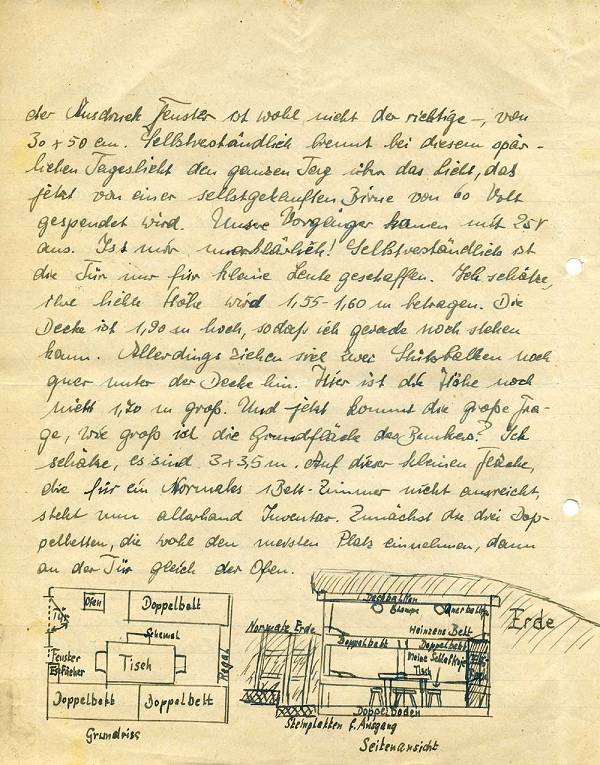 der Ausdruck Fenster ist wohl nicht der richtige –, von
30 x 50 cm. Selbstverständlich brennt bei diesem spär-
lichen Tageslicht den ganzen Tag über das Licht, das
jetzt von einer selbstgekauften Birne von 60 Volt
gespendet wird. Unsre Vorgänger kamen mit 25V
aus. Ist mir unerklärlich! Selbstverständlich ist
die Tür nur für kleine Leute geschaffen. Ich schätze,
ihre lichte Höhe wird 1,55-1,60 m betragen. Die
Decke ist 1,90 m hoch, sodaß ich gerade noch stehen
kann. Allerdings ziehen sich zwei Stützbalken noch
quer unter der Decke hin. Hier ist die Höhe noch
nicht 1,70 m groß. Und jetzt kommt die große Fra-
ge, wie groß ist die Grundfläche des Bunkers? Ich
schätze, es sind 3 x 3,5 m. Auf dieser kleinen Fläche,
die für ein Normales 1Bett-Zimmer nicht ausreicht,
steht nun allerhand Inventar. Zunächst die drei Dop-
pelbetten, die wohl den meisten Platz einnehmen, dann
an der Tür gleich der Ofen.
Tür
Ofen
Doppelbett
Schemel
Tisch
Fenster
Regal
Doppelbett
Doppelbett
Grundriss
Deckbalken
Lampe
Querbalken
Erde
Normale Erde
Heinzens Bett
Doppelbett
Doppelbett
Meine Schlafkoje
Tisch
Doppelboden
Steinplatten f. Ausgang
Seitenansicht